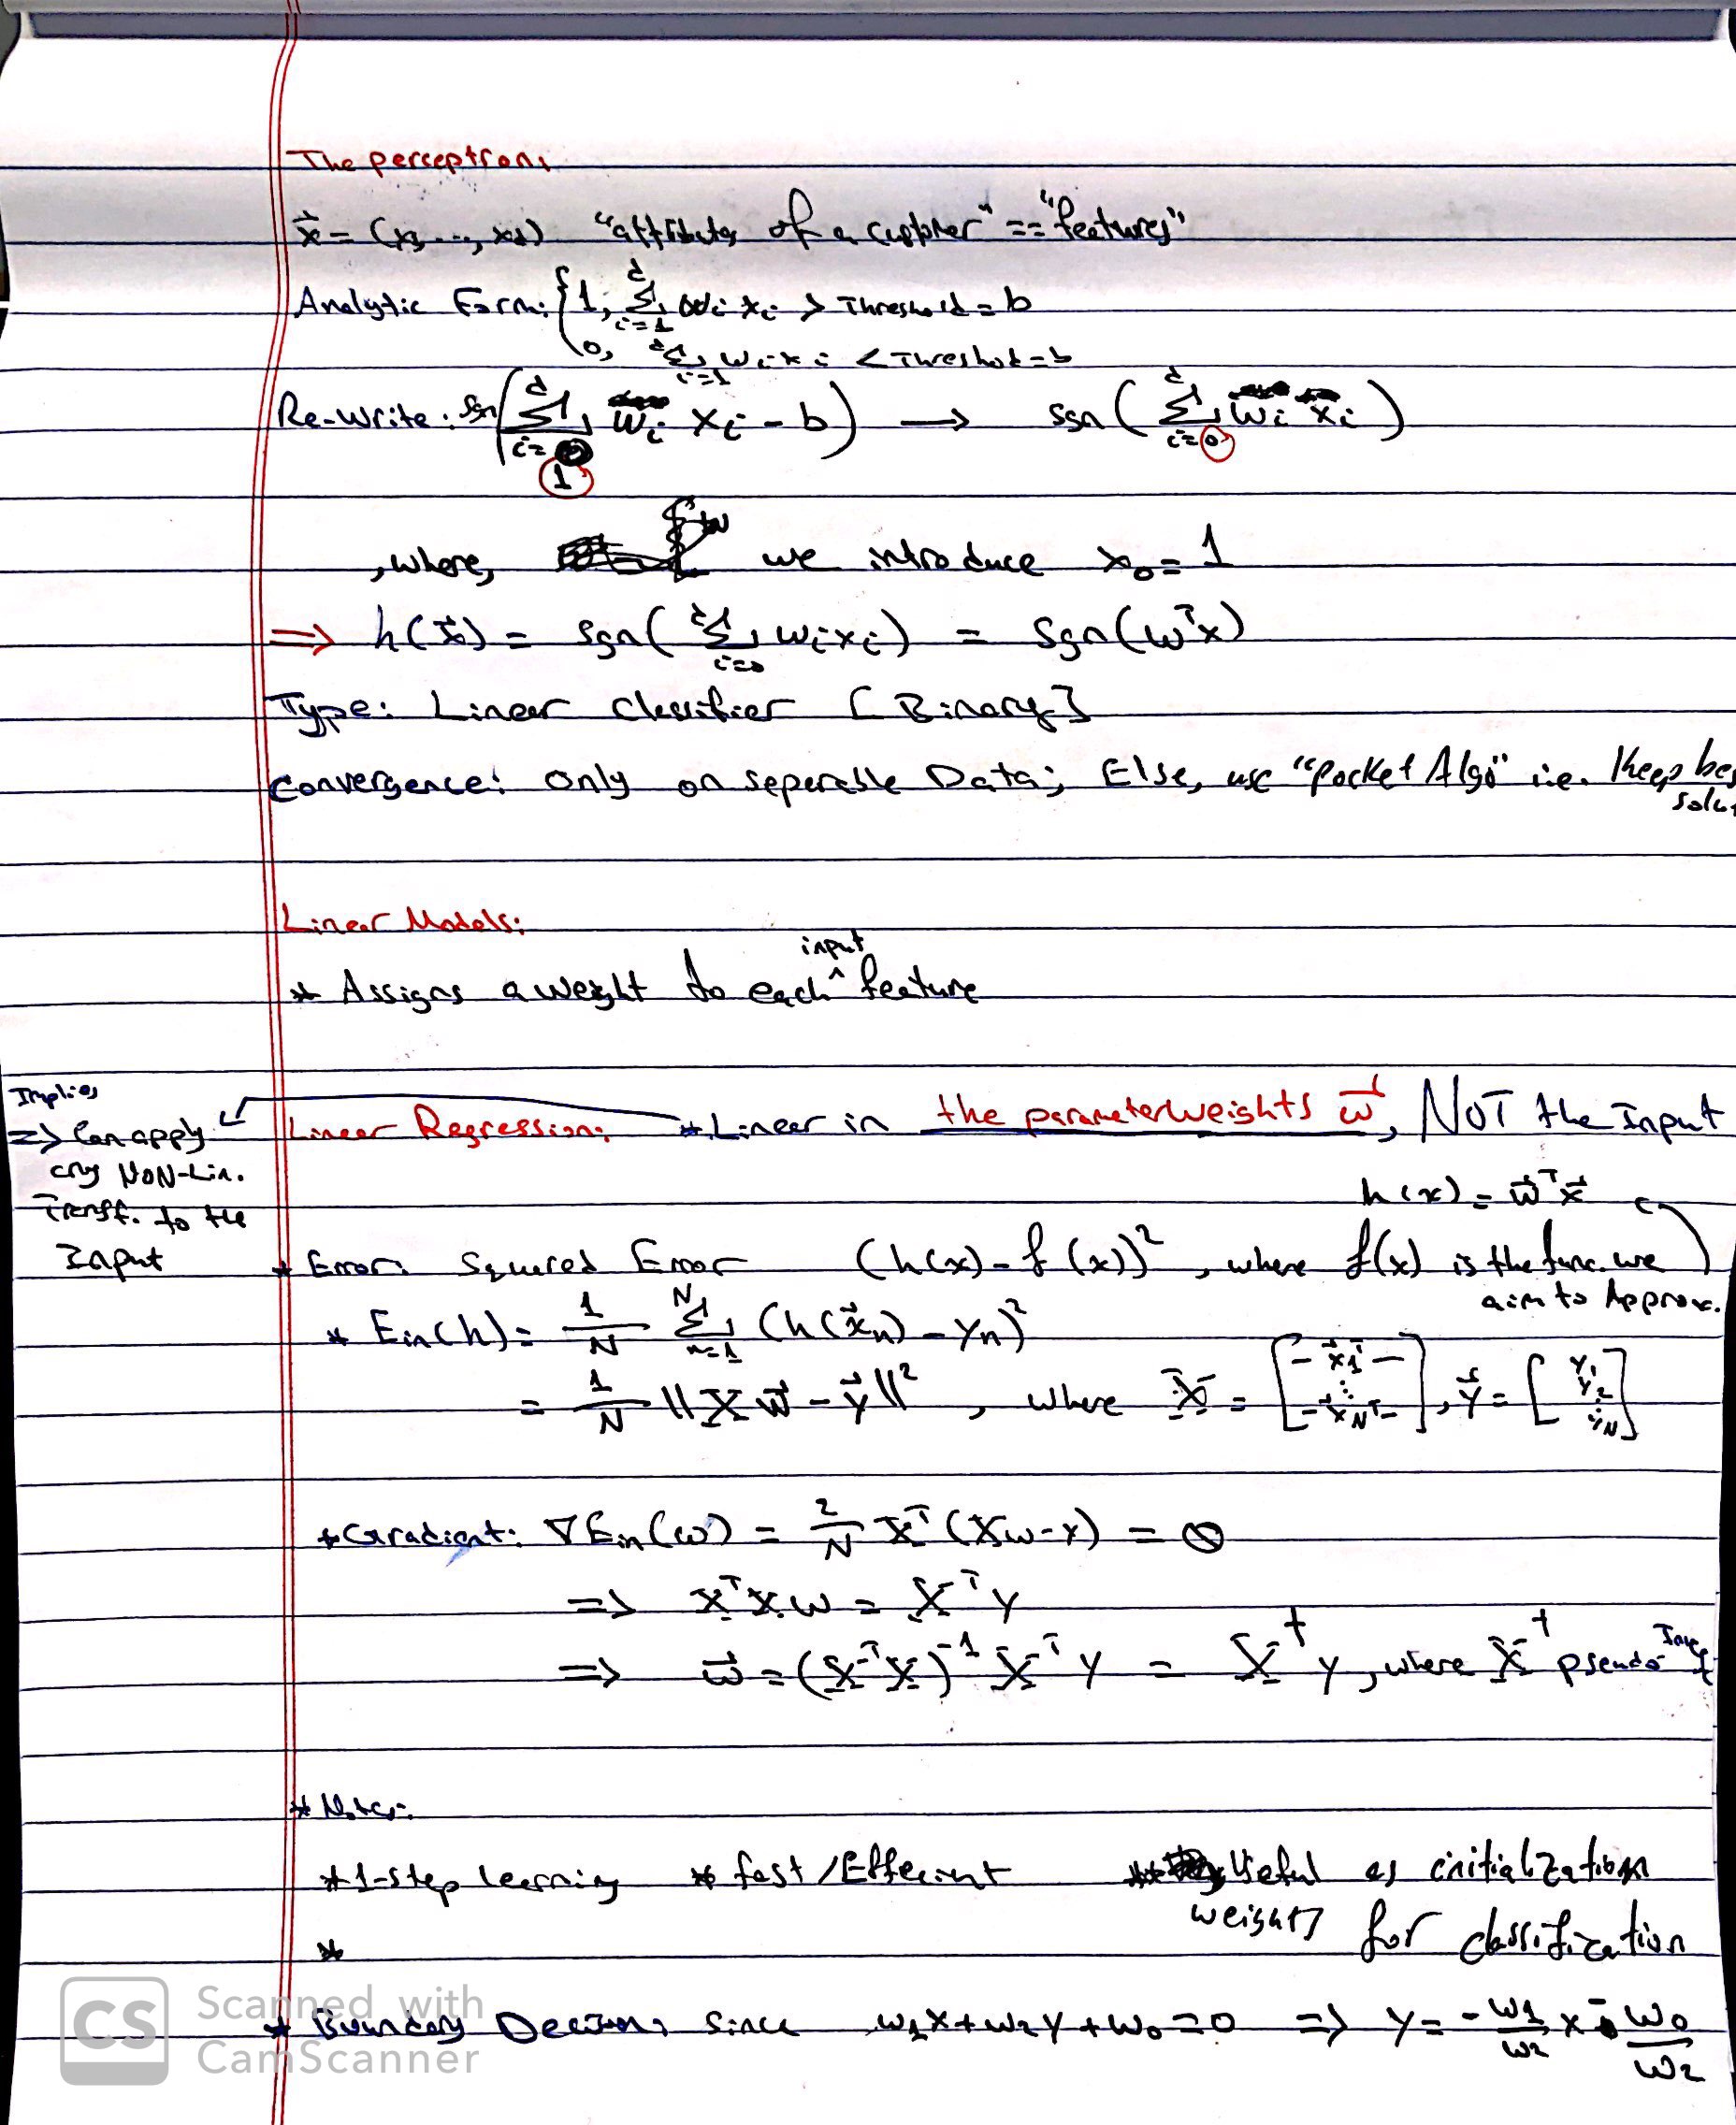 The perceptron:
x⃗ = (x1, ..., xd) "attributes of a customer" == "features"
Analytic Form: { 1, Σ_{i=1}^{d} wi xi > Threshold = b
0, Σ_{i=1}^{d} wi xi < Threshold = b
Re-write: sgn( Σ_{i=1}^{d} wi xi - b ) → sgn( Σ_{i=0}^{d} wi xi )
, where, we introduce x0 = 1
=> h(x⃗) = sgn( Σ_{i=0}^{d} wi xi ) = sgn(w^T x)
Type: Linear classifier [Binary]
Convergence: Only on seperable Data; Else, use "Pocket Algo" i.e. Keep
Linear Models:
* Assigns a weight to each input feature
Linear Regression: * Linear in the parameter weights w⃗, NOT the Input
Implies
=> Can apply
any NON-Lin.
Transf. to the
Input
h(x) = w⃗^T x⃗
* Error: Squared Error (h(x) - f(x))², where f(x) is the func. we
aim to Approx.
* Ein(h) = 1/N Σ_{n=1}^{N} (h(x⃗n) - yn)²
= 1/N ||X w⃗ - y⃗||², where X = [ - x⃗1^T - ⋮ - x⃗N^T - ], y⃗ = [ y1 y2 ⋮ yN ]
* Gradient: ∇Ein(w) = 2/N X^T (Xw - y) = 0
=> X^T X w = X^T y
=> w⃗ = (X^T X)^-1 X^T y = X^† y, where X^† pseudo
* Notes:
* 1-step learning * fast/Efficient * Useful as initialization
weights for classification
*
* Boundary Decision: since w1x + w2y + w0 = 0 => y = - w1/w2 x - w0/w2
CS Scanned with
CamScanner